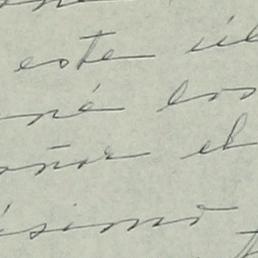 este úl
né los
oñar el
ésimo